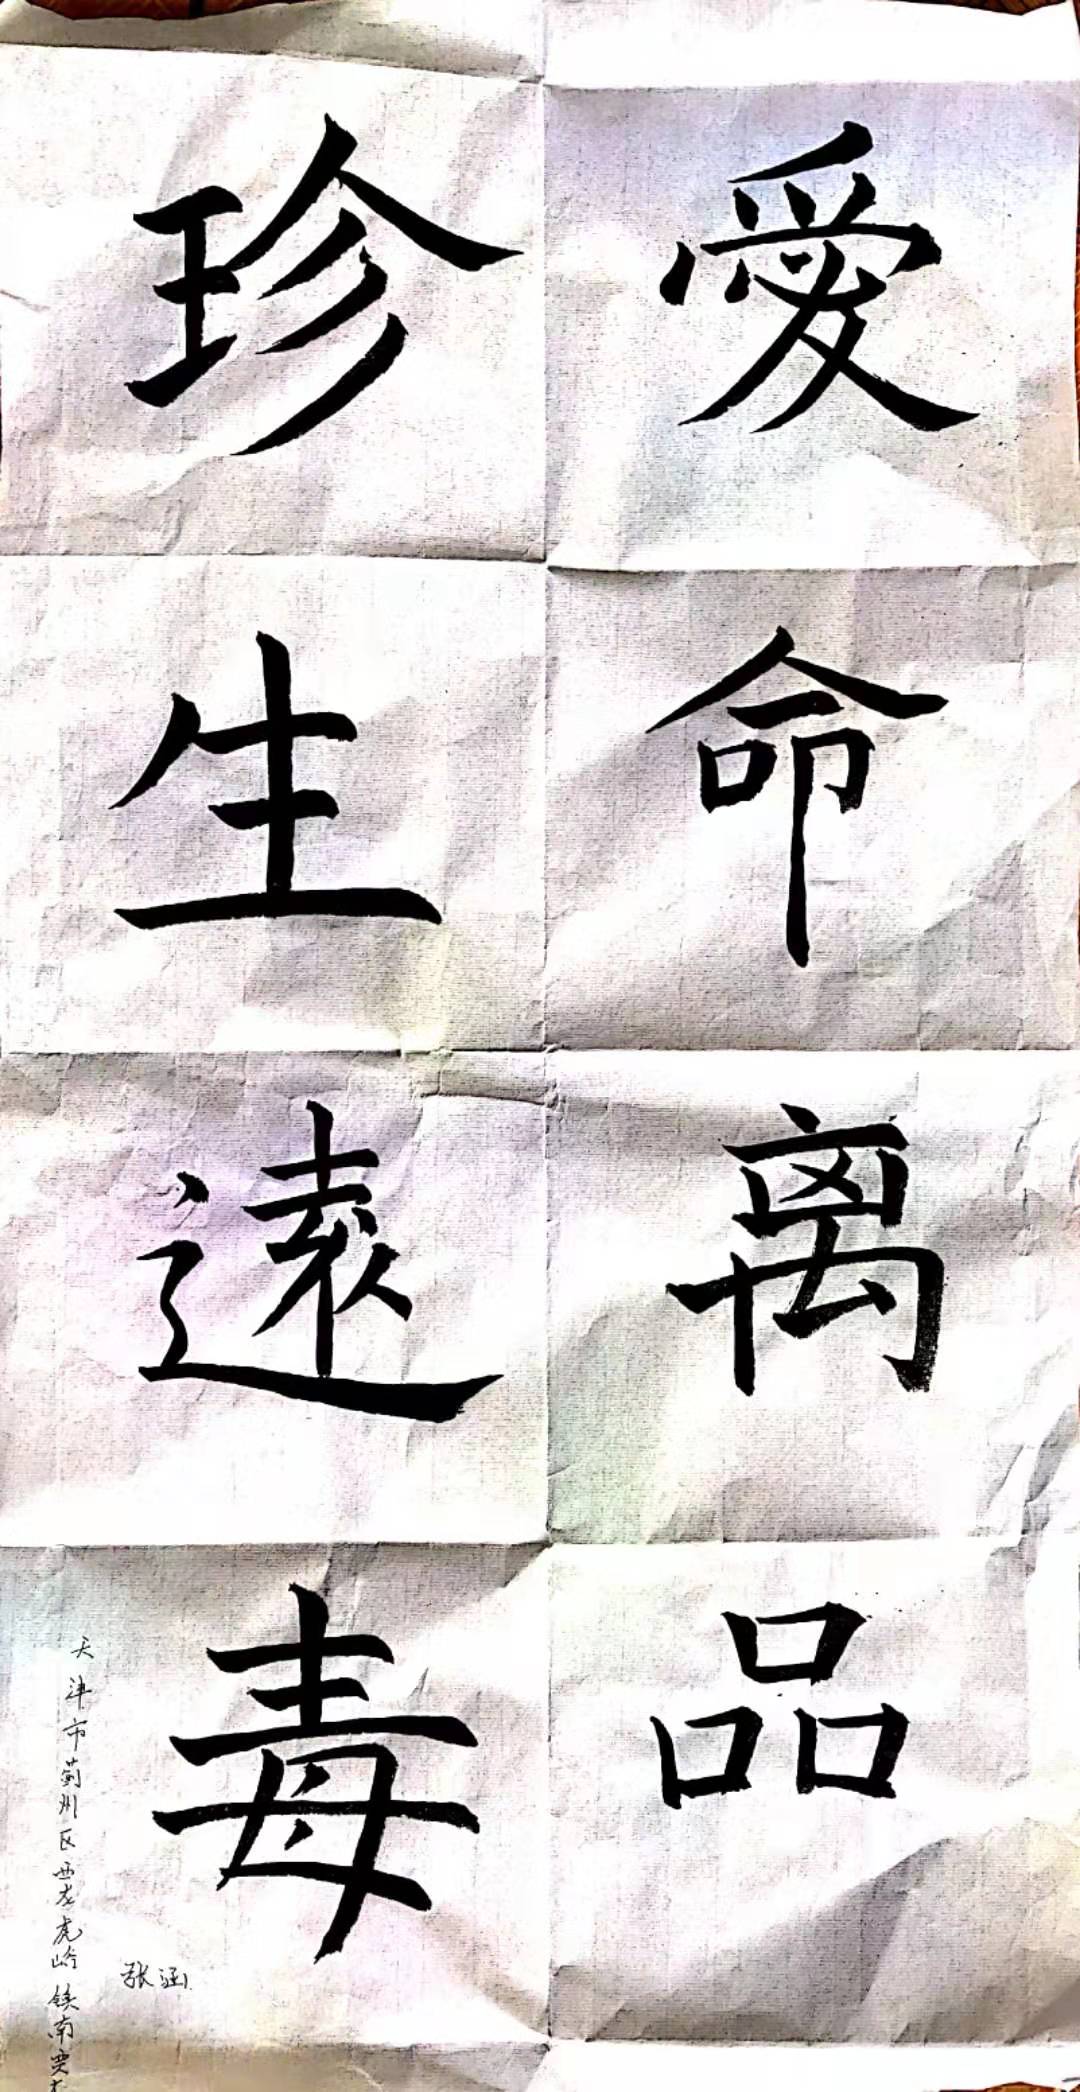 珍愛
生命
遠离
毒品
天津市蓟州区西龙虎峪镇南贾
张涵